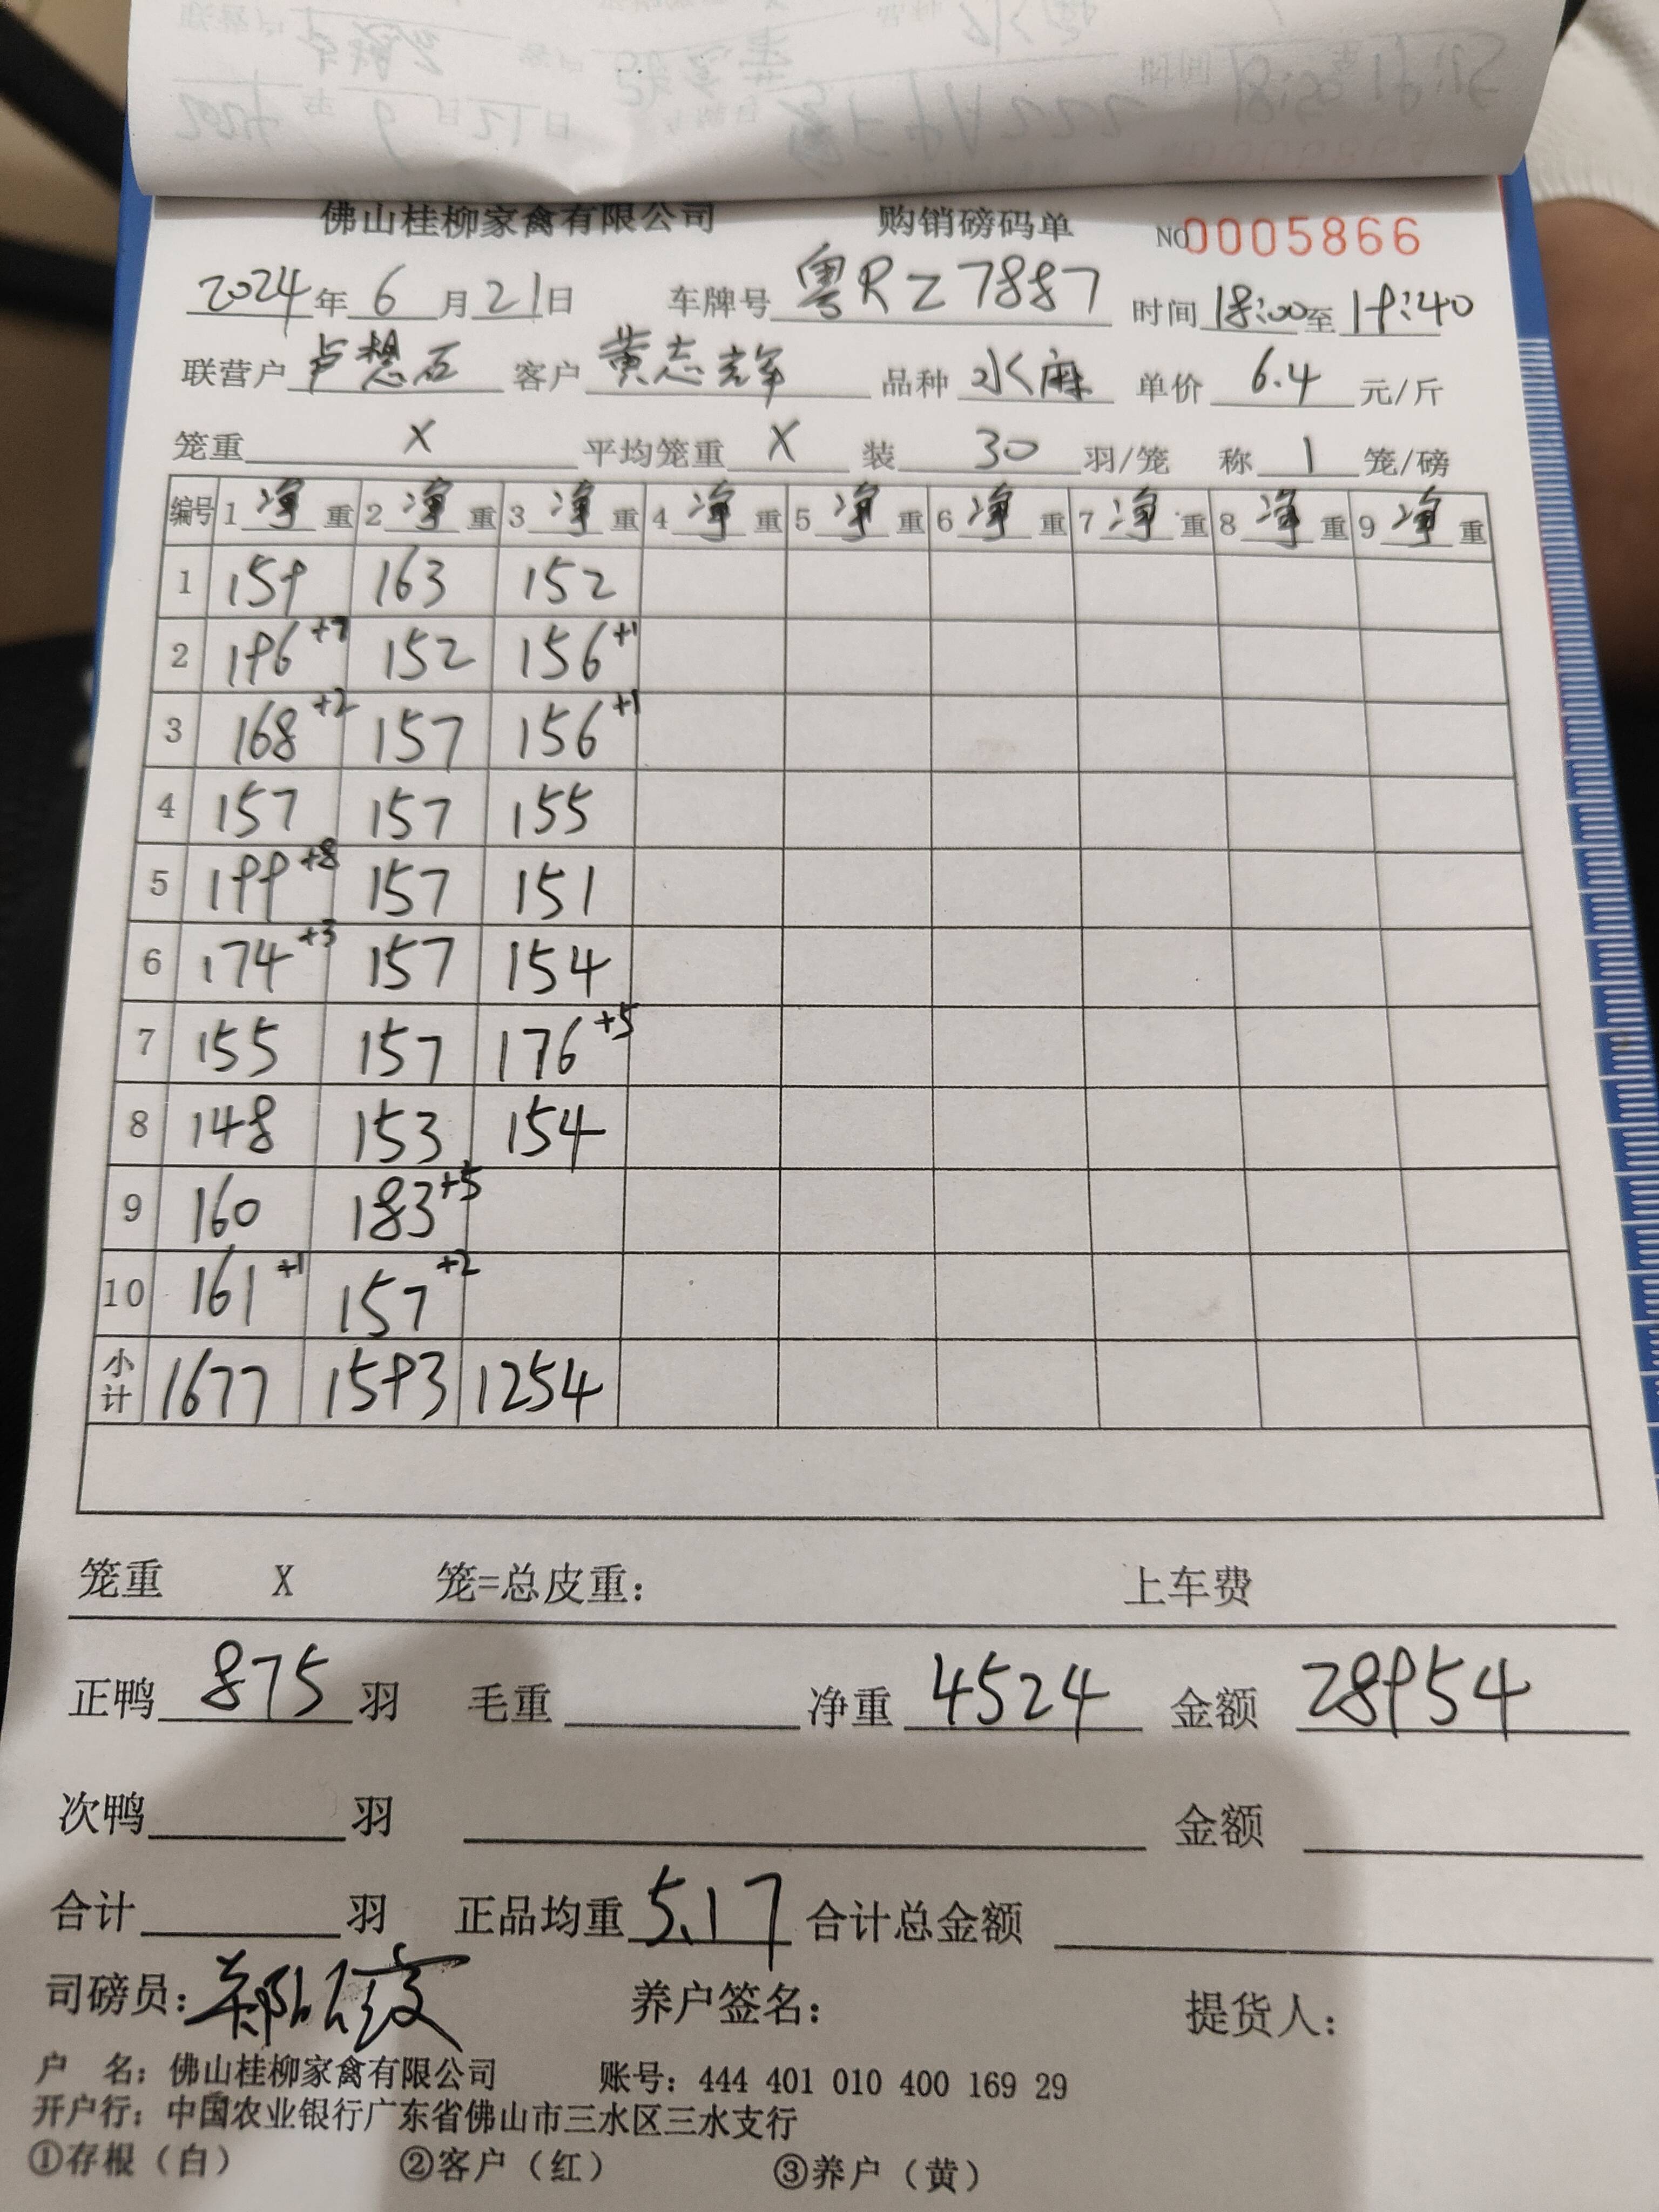 佛山桂柳家禽有限公司 购销磅码单 NO0005866
2024年6月21日 车牌号 粤RZ7887 时间 18:00至19:40
联营户 卢想石 客户 黄志辉 品种 水麻 单价 6.4 元/斤
笼重 X 平均笼重 X 装 30 羽/笼 称 1 笼/磅
编号 1 净 重 2 净 重 3 净 重 4 净 重 5 净 重 6 净 重 7 净 重 8 净 重 9 净 重
1 159 163 152
2 196+7 152 156+1
3 168+2 157 156+1
4 157 157 155
5 199+8 157 151
6 174+3 157 154
7 155 157 176+5
8 148 153 154
9 160 183+5
10 161+1 157+2
小计 1677 1593 1254
笼重 X 笼=总皮重: 上车费
正鸭 875 羽 毛重 净重 4524 金额 28954
次鸭 羽 金额
合计 羽 正品均重 5.17 合计总金额
司磅员: 养户签名: 提货人:
户 名: 佛山桂柳家禽有限公司 账号: 444 401 010 400 169 29
开户行: 中国农业银行广东省佛山市三水区三水支行
①存根（白） ②客户（红） ③养户（黄）